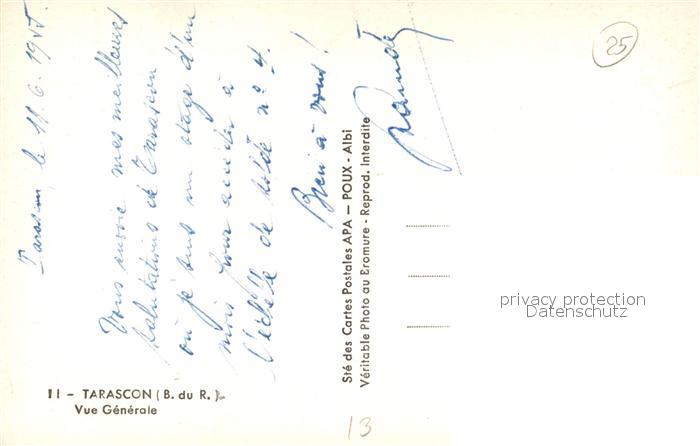 Tarascon, le 18.6.1955.
Vous envoie mes meilleures
salutations de Tarascon
où je suis un stage d'un
mois pour accéder à
l'échelle de solde n° 4.
Bien à vous!
25
Sté des Cartes Postales APA — POUX - Albi
Véritable Photo au Bromure - Reprod. Interdite
privacy protection
Datenschutz
11 - TARASCON (B. du R.)
Vue Générale
13